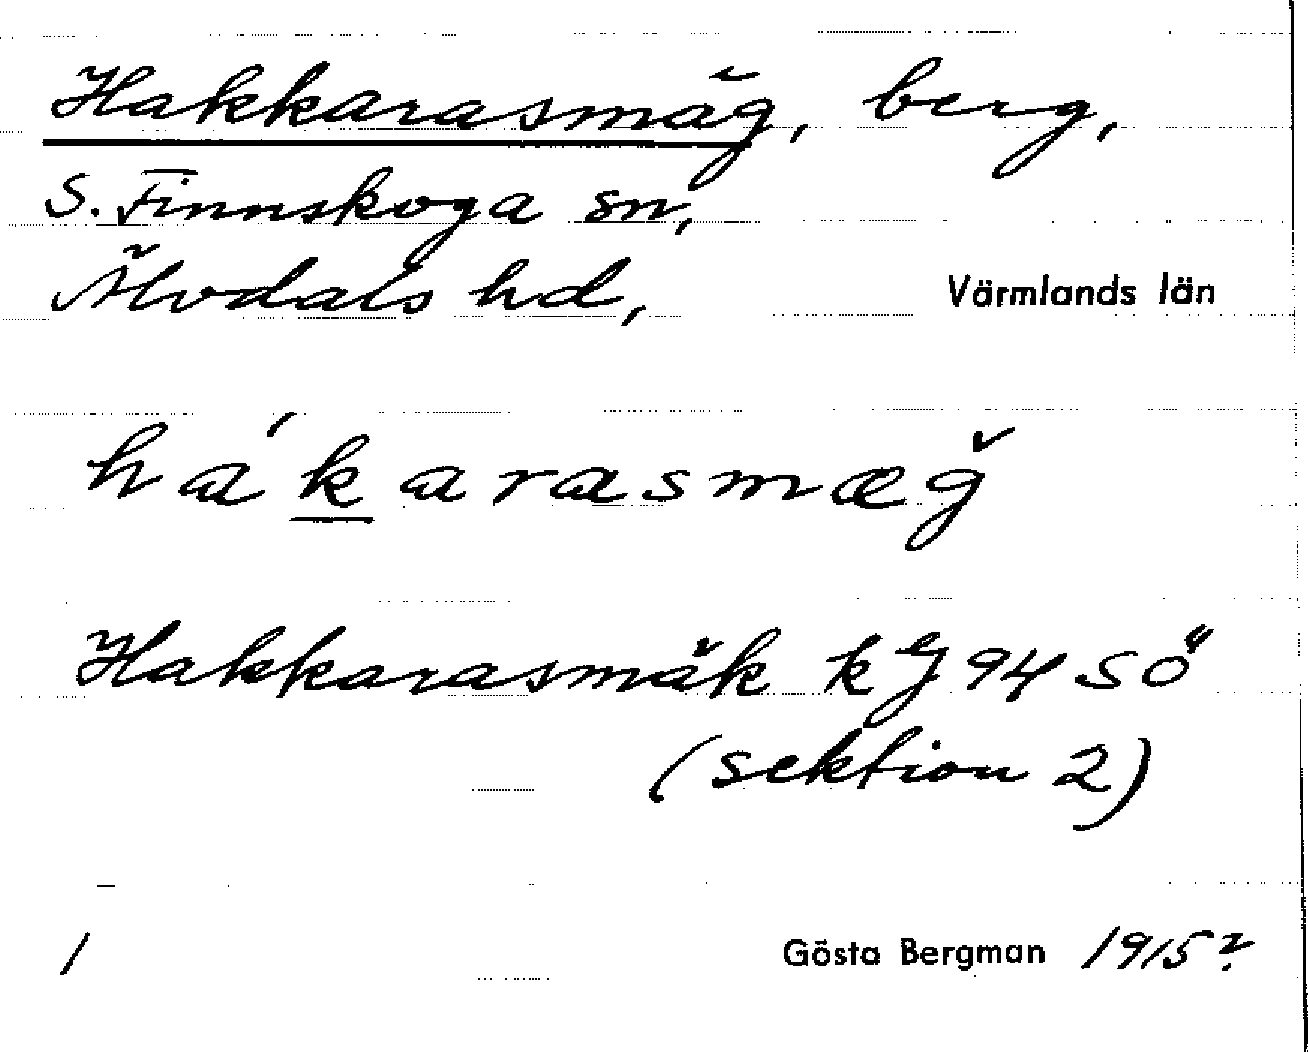 Hakkarasmäg, berg,
S. Finnskoga sn,
Älvdals hd, Värmlands län
hákarasmæǧ
Hakkarasmäk kgj 94 SÖ
(sektion 2)
1 Gösta Bergman 1915?